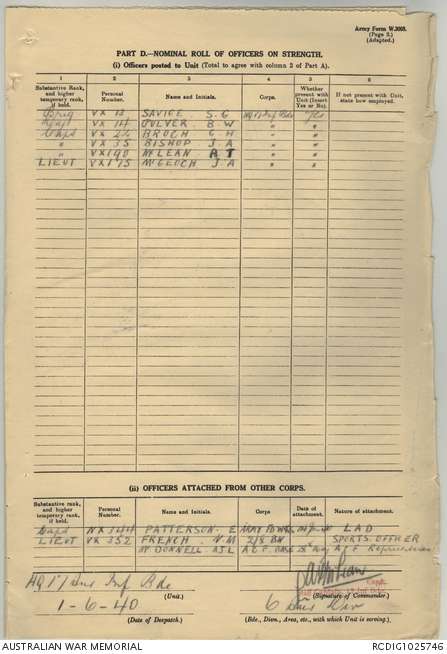 Army Form W.3008.
(Page 3.)
(Adapted.)
PART D.—NOMINAL ROLL OF OFFICERS ON STRENGTH.
(i) Officers posted to Unit (Total to agree with column 2 of Part A).
1 2 3 4 5 6
Substantive Rank, and higher temporary rank, if held. Personal Number. Name and Initials. Corps. Whether present with Unit (Insert Yes or No). If not present with Unit, state how employed.
Brig VX 13 SAVIGE S. G Yes
VX 14 B. W " "
Capt VX 24 BROCK G H " "
" VX 35 BISHOP J. A " "
" VX 190 McLEAN A T " "
LIEUT VX 175 McGEOCH J. A " "
(ii) OFFICERS ATTACHED FROM OTHER CORPS.
Substantive rank, and higher temporary rank, if held. Personal Number. Name and Initials. Corps Date of attachment. Nature of attachment.
Capt NX 344 PATTERSON. E L A D
LIEUT VX 352 FRENCH. N M 2/8 BN " SPORTS OFFICER
A.J.L A C F
HQ 17 Aust Inf Bde
(Unit.)
Capt.
(Signature of Commander.)
1-6-40
(Date of Despatch.)
6 Aust Div
(Bde., Divn., Area, etc., with which Unit is serving.)
AUSTRALIAN WAR MEMORIAL
RCDIG1025746